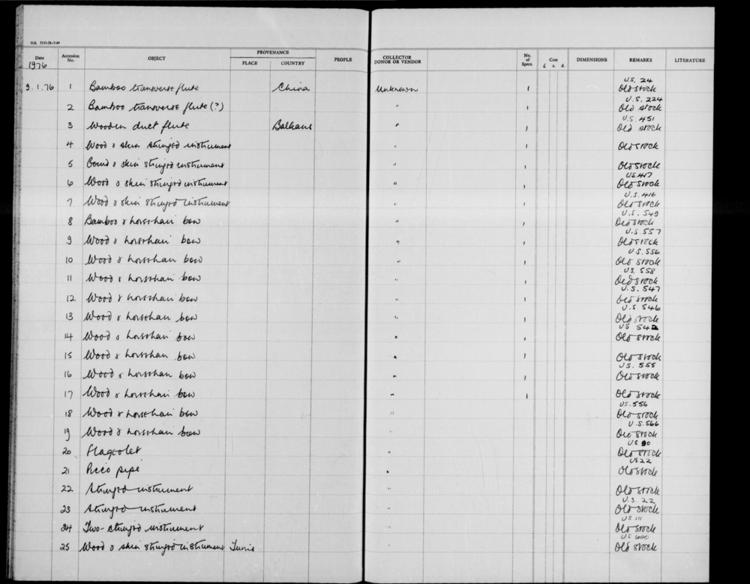 Date
Accession No.
OBJECT
PROVENANCE
PLACE
COUNTRY
PEOPLE
COLLECTOR DONOR OR VENDOR
No. of Specs.
Cost
£ s. d.
DIMENSIONS
REMARKS
LITERATURE
1976
9.1.76 1 Bamboo transverse flute China Unknown 1 U.S. 24 Old Stock
2 Bamboo transverse flute (?) " 1 U.S. 224 Old Stock
3 Wooden duct flute Balkans " 1 U.S. 451 Old Stock
4 Wood & skin stringed instrument " 1 Old Stock
5 Gourd & skin stringed instrument " 1 Old Stock
6 Wood & skin stringed instrument " 1 U.S. 417 Old Stock
7 Wood & skin stringed instrument " 1 U.S. 416 Old Stock
8 Bamboo & horsehair bow " 1 U.S. 549 Old Stock
9 Wood & horsehair bow " 1 U.S. 557 Old Stock
10 Wood & horsehair bow " 1 U.S. 556 Old Stock
11 Wood & horsehair bow " 1 U.S. 558 Old Stock
12 Wood & horsehair bow " 1 U.S. 547 Old Stock
13 Wood & horsehair bow " 1 U.S. 546 Old Stock
14 Wood & horsehair bow " 1 U.S. 542 Old Stock
15 Wood & horsehair bow " 1 Old Stock
16 Wood & horsehair bow " 1 U.S. 555 Old Stock
17 Wood & horsehair bow " 1 Old Stock
18 Wood & horsehair bow " U.S. 556 Old Stock
19 Wood & horsehair bow " U.S. 566 Old Stock
20 Flageolet " Old Stock
21 Pico pipe " U.S. 22 Old Stock
22 Stringed instrument " Old Stock
23 Stringed instrument " U.S. 22 Old Stock
24 Two-stringed instrument " U.S. 111 Old Stock
25 Wood & skin stringed instrument Tunis " Old Stock